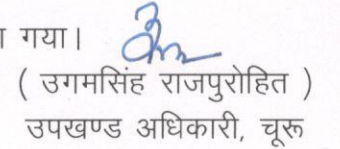 गया।
( उगमसिंह राजपुरोहित )
उपखण्ड अधिकारी, चूरू